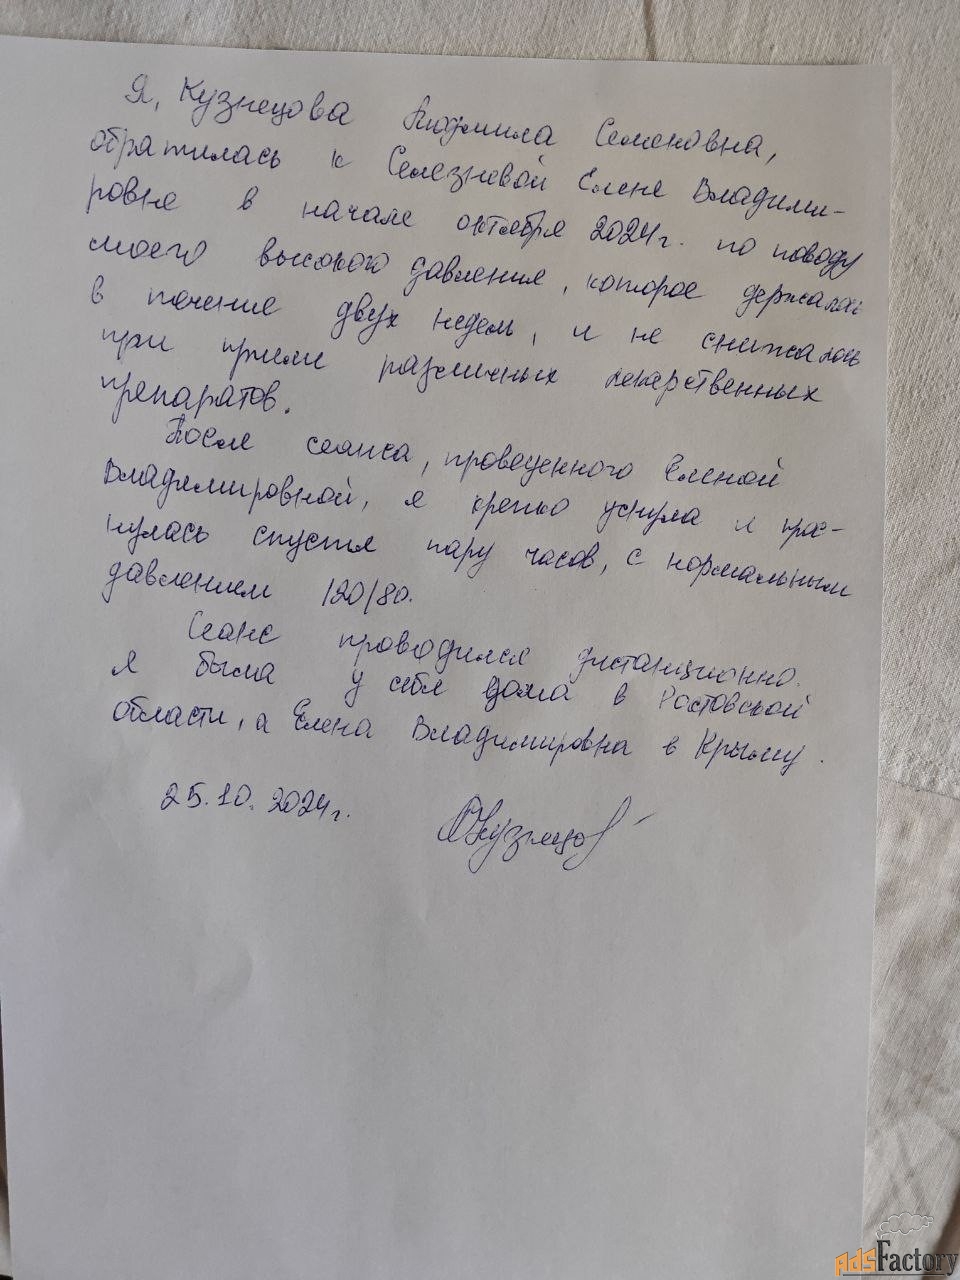 Я, Кузнецова Людмила Семеновна,
обратилась к Селезневой Елене Владими-
ровне в начале октября 2024г. по поводу
моего высокого давления, которое держалось
в течение двух недель, и не снижалось
при приёме различных лекарственных
препаратов.
После сеанса, проведенного Еленой
Владимировной, я крепко уснула и прос-
нулась спустя пару часов, с нормальным
давлением 120/80.
Сеанс проводился дистанционно.
Я была у себя дома в Ростовской
области, а Елена Владимировна в Крыму.
25.10.2024г.
AdsFactory